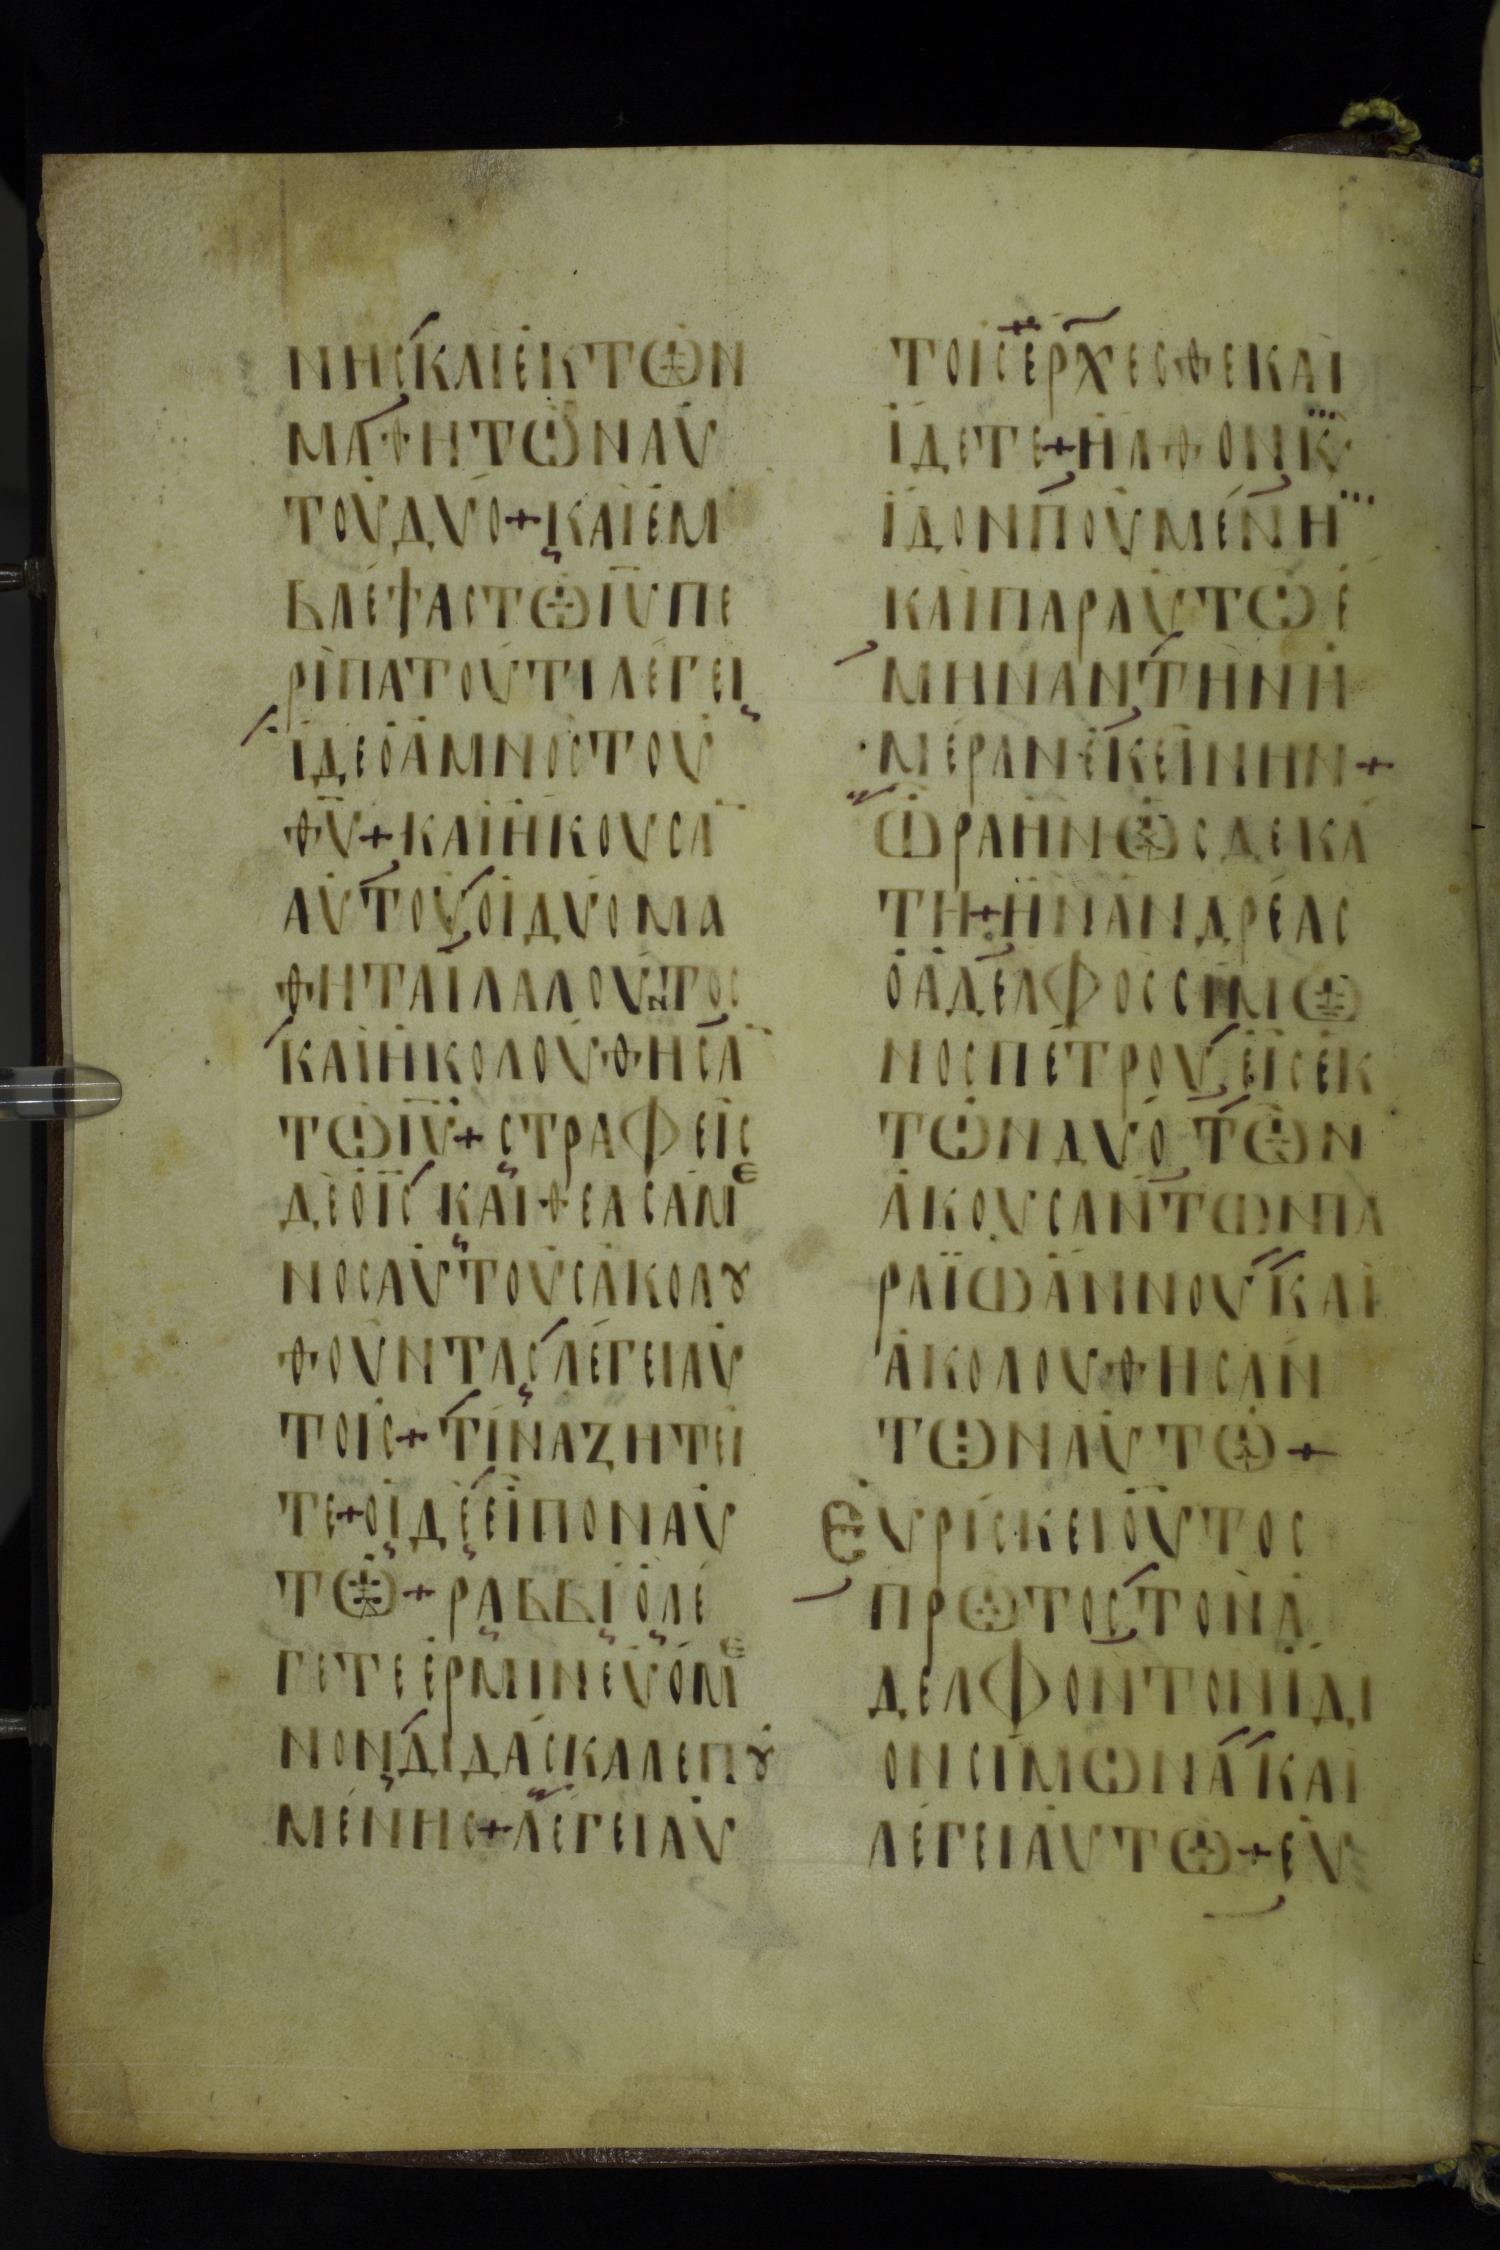 ΝΗϹΚΑΙΕΚΤΩΝ
ΜΑΘΗΤΩΝΑΥ
ΤΟΥΔΥΟ+ΚΑΙΕΜ
ΒΛΕΨΑϹΤΩΙΥΠΕ
ΡΙΠΑΤΟΥΤΙΛΕΓΕΙ
ΙΔΕΟΑΜΝΟϹΤΟΥ
ΘΥ+ΚΑΙΗΚΟΥϹΑ
ΑΥΤΟΥΟΙΔΥΟΜΑ
ΘΗΤΑΙΛΑΛΟΥΝΤΟϹ
ΚΑΙΗΚΟΛΟΥΘΗϹΑ
ΤΩΙΥ+ϹΤΡΑΦΕΙϹ
ΔΕΟΙϹΚΑΙΘΕΑϹΑΜΕ
ΝΟϹΑΥΤΟΥϹΑΚΟΛȣ
ΘΟΥΝΤΑϹΛΕΓΕΙΑΥ
ΤΟΙϹ+ΤΙΝΑΖΗΤΕΙ
ΤΕ+ΟΙΔΕΕΙΠΟΝΑΥ
ΤΩ+ΡΑΒΒΙΟΛΕ
ΓΕΤΕΕΡΜΙΝΕΥΟΜΕ
ΝΟΝΔΙΔΑϹΚΑΛΕΠȣ
ΜΕΝΗϹ+ΛΕΓΕΙΑΥ
ΤΟΙϹΕΡΧΕϹΘΕΚΑΙ
ΙΔΕΤΕ+ΗΛΘΟΝΚ
ΙΔΟΝΠΟΥΜΕΝΗ
ΚΑΙΠΑΡΑΥΤΩΕ
ΜΗΝΑΝΤΗΝΗ
ΜΕΡΑΝΕΚΕΙΝΗΝ+
ΩΡΑΗΝΩϹΔΕΚΑ
ΤΗ+ΗΝΑΝΔΡΕΑϹ
ΟΑΔΕΛΦΟϹϹΙΜΩ
ΝΟϹΠΕΤΡΟΥΕΙϹΕΚ
ΤΩΝΔΥΟΤΩΝ
ΑΚΟΥϹΑΝΤΩΝΠΑ
ΡΑΪΩΑΝΝΟΥΚΑΙ
ΑΚΟΛΟΥΘΗϹΑΝ
ΤΩΝΑΥΤΩ+
ΕΥΡΙϹΚΕΙΟΥΤΟϹ
ΠΡΩΤΟϹΤΟΝΑ
ΔΕΛΦΟΝΤΟΝΙΔΙ
ΟΝϹΙΜΩΝΑΚΑΙ
ΛΕΓΕΙΑΥΤΩ+ΕΥ